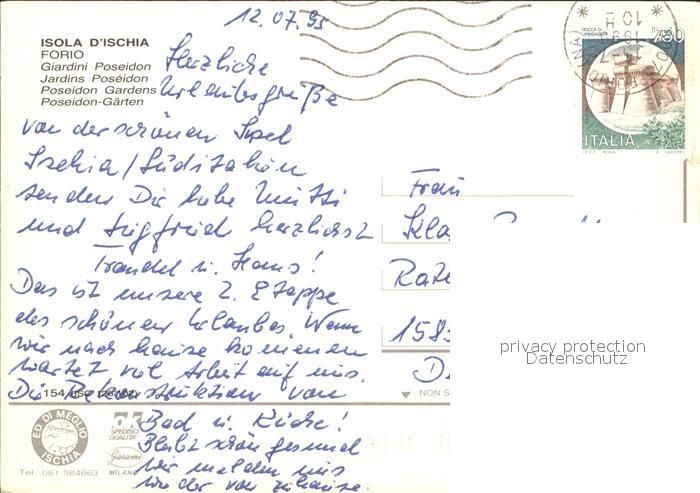 12.07.95
ISOLA D'ISCHIA
FORIO
Giardini Poseidon
Jardins Poséidon
Poseidon Gardens
Poseidon-Gärten
Herzliche
Urlaubsgrüße
von der schönen Insel
Ischia/Süditalien
senden Dir liebe Mutti
und Siegfried herzlichst
Traudel u. Hans!
Das ist unsere 2. Etappe
des schönen Urlaubes. Wenn
wir nach hause kommen
wartet voll Arbeit auf uns.
Die Rekonstruktion von
Bad u. Küche!
Bleibt schön gesund
wir melden uns
wieder von zuhause.
750
ITALIA
Frau
Kla
Rate
158
D
privacy protection
Datenschutz
154
NON S
ED. DI MEGLIO
ISCHIA
Tel. 081.984663
SPEDISCI
QUALITÀ
Garami
MILANO